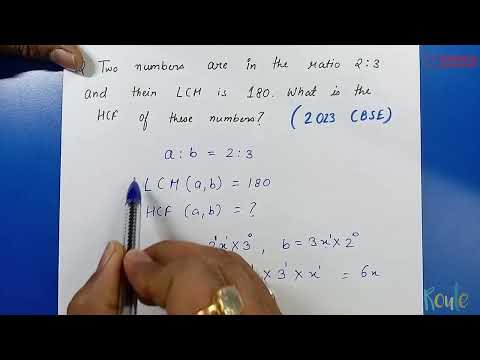 Two numbers are in the ratio 2:3
and their LCM is 180. What is the
HCF of these numbers? (2023 CBSE)
a:b = 2:3
LCM(a,b) = 180
HCF (a,b) = ?
2¹x¹×3⁰, b = 3x¹×2⁰
× 3¹ × x¹ = 6x
Route